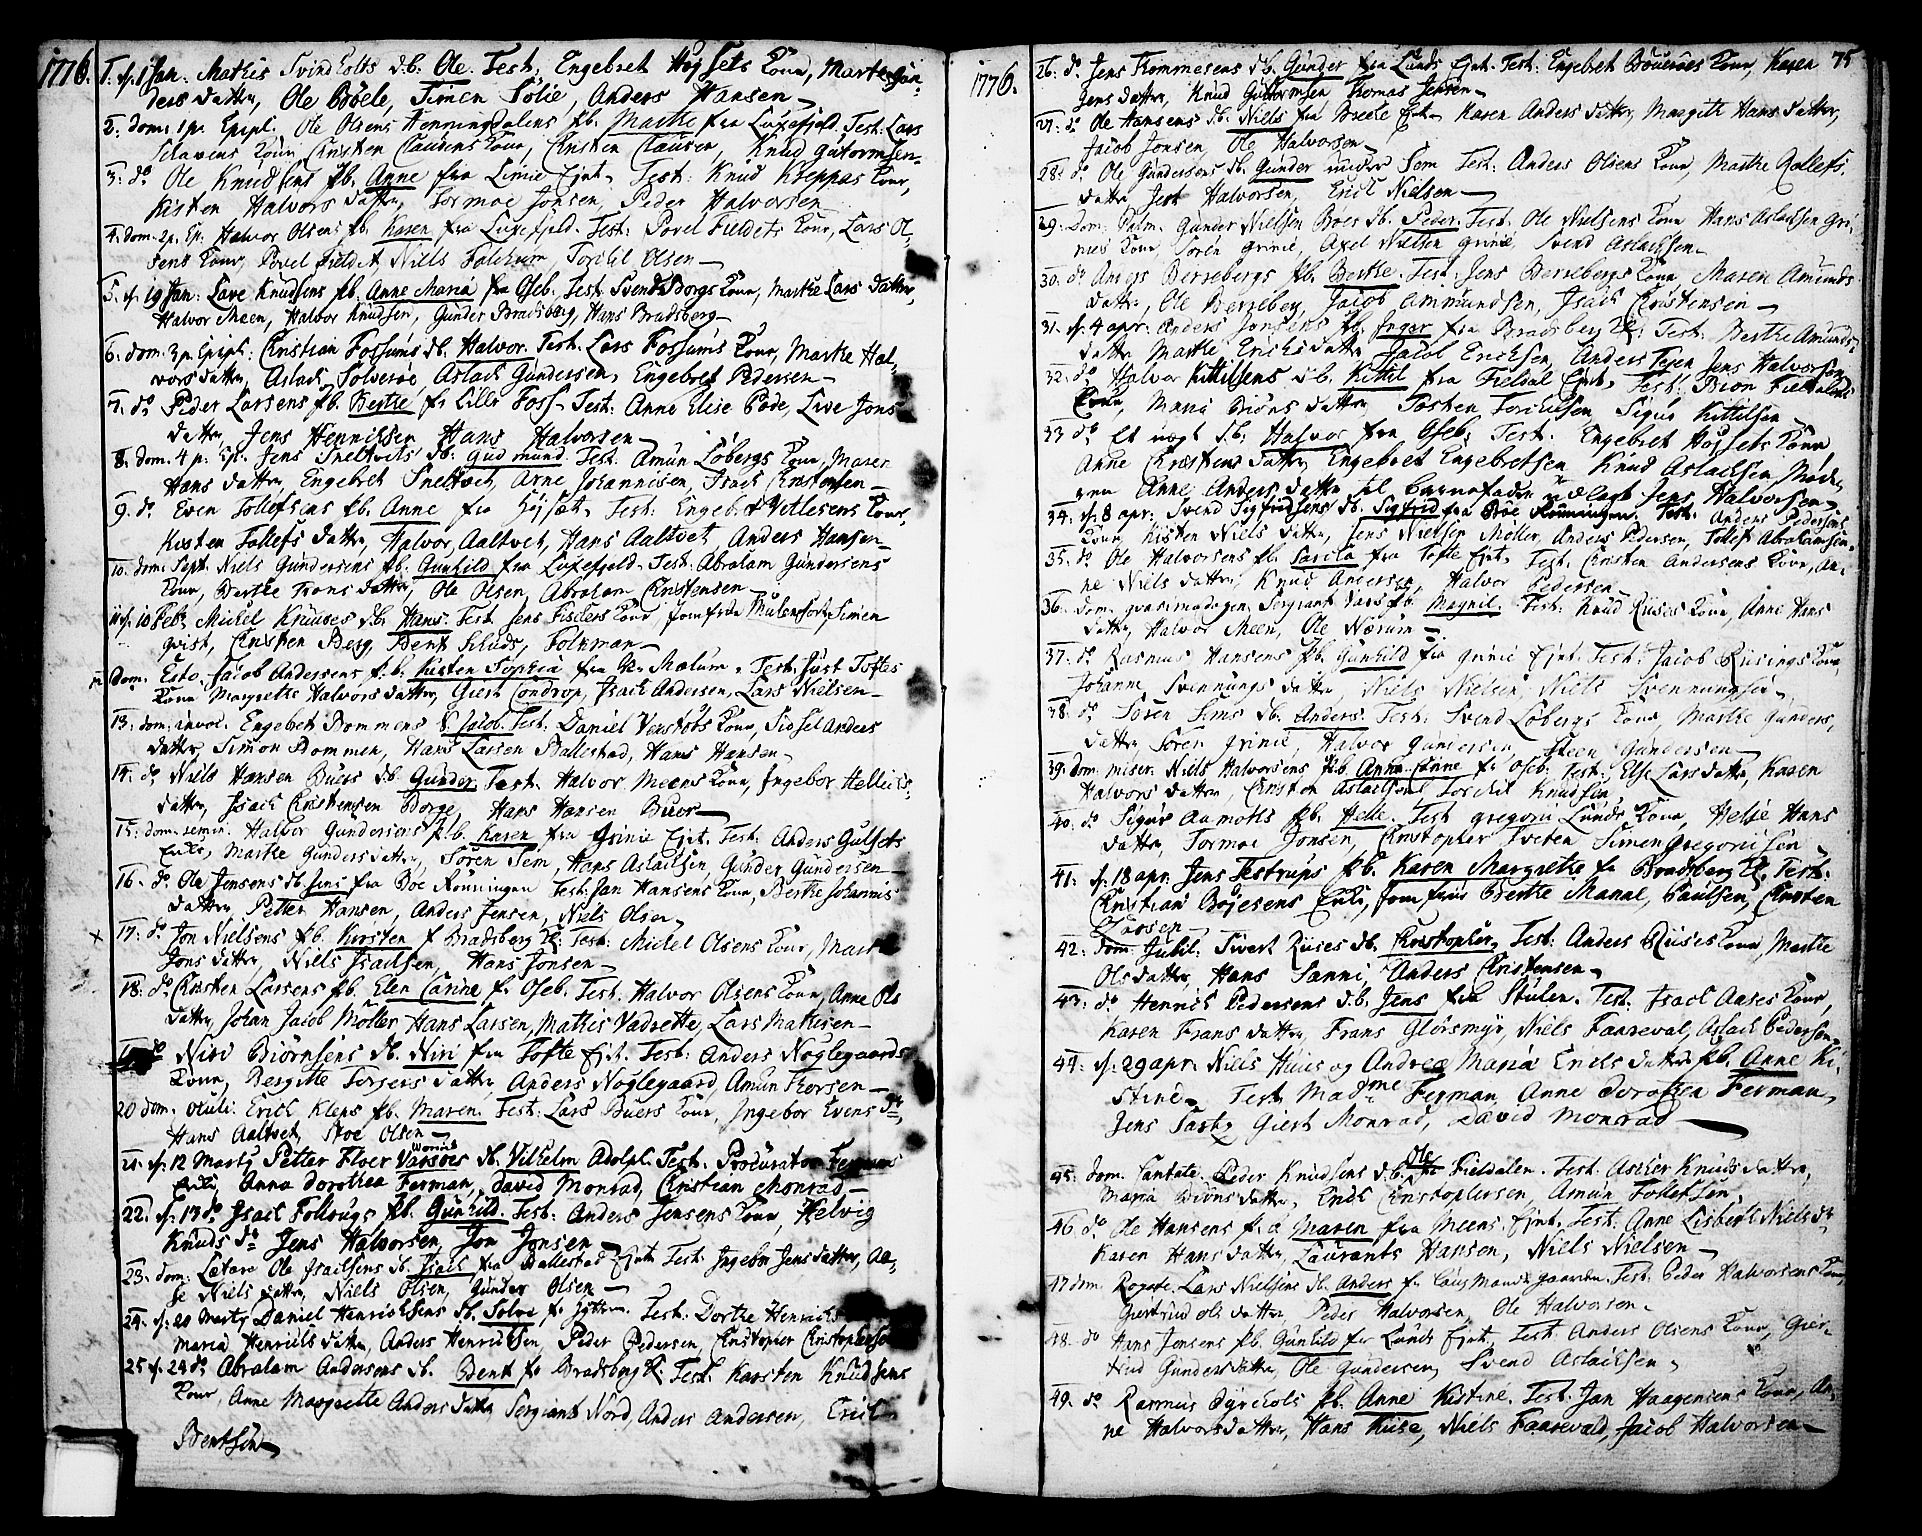 1776.
1. f. 1 Jan. Mathis Svindholts d.b. Ole. Test. Engebret Høysets Kone, Marte Gun-
ders datter, Ole Bøele, Simen Solie, Anders Hansen
2. dom. 1 p. Epiph. Ole Olsens Henningdalens p.b. Marthe fra Luxefjeld. Test: Lars
Clavens Kone, Christen Clausens Kone, Christen Clausen, Knud Gutormsen
3. do Ole Knudsens p.b. Anne fra Limie Ejet. Test: Knud Kreppas Kone,
Kisten Halvors datter, Tormoe Jonsen, Peder Halvorsen
4. dom. 2 p. Ep. Halvor Olsens p.b. Karen fra Luxefjeld. Test: Povel Fieldets Kone, Lars Ol-
sens Kone, Povel Fieldet, Niels Folkum, Torchel Olsen
5. f. 19 Jan: Lave Knudsens p.b. Anne Maria fra Oseb. Test. Svend Borgs Kone, Marthe Lars datter,
Halvor Meen, Halvor Knudsen, Gunder Bradsberg, Hans Bradsberg
6. dom. 3 p. Epiph: Christian Fossums d.b. Halvor. Test. Lars Fossums Kone, Marthe Hal-
vors datter, Aslach Solveroe, Aslach Gundersen, Engebret Pedersen
7. do Peder Larsens p.b. Berthe fr Lille Foss. Test: Anne Elise Bode, Live Jons
datter, Jens Hennissen, Hans Halvorsen
8. dom. 4 p. Ep. Jens Sneltvets d.b. Gudmund. Test. Amun Løbergs Kone, Maren
Hans datter, Engebret Sneltvet, Arne Johannesen, Isach Christensen
9. do Even Tollefsens p.b. Anne fra Høysæt. Test: Engebret Vetlesens Kone,
Kisten Tollefs datter, Halvor Aaltvet, Hans Aaltvet, Anders Hansen
10. dom. Sept. Niels Gundersens p.b. Gunhild fra Luxefjeld. Test: Abraham Gundersens
Kone, Berthe Frans datter, Ole Olsen, Abraham Christensen
11. f. 10 Feb. Michel Knuuses d.b. Hans. Test Jens Fischers Kone, Jomfrue Mulenfort, Simen
qvist, Christen Berg, Bent Schuds, Folkman
dom. Esto. Jacob Andersens p.b. Kirsten Sophia fra Gr. Mælum. Test: Just Toftes
Kone, Margrethe Halvors datter, Giert Condrop, Isach Andersen, Lars Nielsen
13. dom. invoc. Engebret Bommens d.b. Jacob. Test: Daniel Venstøbs Kone, Sidsel Anders
datter, Simon Bommen, Hans Larsen Ballestad, Hans Hansen
14. do Niels Hansen Buers d.b. Gunder. Test. Halvor Meens Kone, Ingebor Hellichs
datter, Isach Christensen Borge, Hans Hansen Buer
15. dom. remin. Halvor Gundersens p.b. Karen fra Grinie Ejet. Test: Anders Gulsets
Enke, Marthe Gunders datter, Søren Sem, Hans Aslachsen, Gunder Gundersen
16. do Ole Jensens d.b. Jens fra Bøe Rønningen. Test: Jan Hansens Kone, Berthe Johannis
datter, Petter Hansen, Anders Jensen, Niels Olsen
17. do Jon Nielsens p.b. Kirsten f Bradsberg Kl. Test: Michel Olsens Kone, Marthe
Jons datter, Niels Isachsen, Hans Jonsen
18. do Christen Larsens p.b. Elen Canne fr Oseb. Test. Halvor Olsens Kone, Anne Ols
datter, Johan Jacob Møller, Hans Larsen, Mathis Vadrette, Lars Mathisen
19. do Niri Biørnsens d.b. Niri fra Tofte Ejet. Test: Anders Nøglegaards
Kone, Bergitte Torgers datter, Anders Nøglegaard, Amun Thorsen
20 dom. oculi: Erich Kleps p.b. Maren. Test: Lars Buers Kone, Ingebor Evens dr,
Hans Aaltvet, Stoe Olsen
21. f. 12 Marty Petter Floer Varsoes d.b. Vilhelm Adolph. Test. Procurator Ferman
Enke, Anna Dorothea Ferman, David Monrad, Christian Monrad
22. f. 13 do Isach Follougs p.b. Gunhild. Test: Anders Jensens Kone, Helvig
Knuds dr Jens Halvorsen, Jon Jonsen
23. dom. Lætare Ole Isachsens d.b. Isach fra Ballestad Ejet. Test: Ingebor Jens datter, Aa-
se Niels datter, Niels Olsen, Gunder Olsen
24. f. 20 Marty Daniel Henrichsens d.b. Solve fr Jytten. Test: Dorthe Henrichs
Maria Henrichs datter, Anders Henrichsen, Peder Pedersen, Christopher Christophersen
25 f. 24 do Abraham Andersens d.b. Bent fr Bradsberg Kl. Test. Karsten Knudsens
Kone, Anne Margrethe Anders datter, Sergiant Nord, Anders Andersen, Erich
Bentsen
1776.
75
26. do Jens Thommesens d.b. Gunder fra Lunds Ejet. Test: Engebret Bøueroes Kone, Karen
Jens datter, Knud Guttormsen, Thomas Jensen
27. do Ole Hansens d.b. Niels fra Brekke Ejet. Karen Anders datter, Margith Hans datter,
Jacob Jonsen, Ole Halvorsen
28. do Ole Gundersens d.b. Gunder under Sem. Test: Anders Olsens Kone, Marthe Tollefs
datter, Jest Halvorsen, Erich Nielsen
29. Dom: Palm. Gunder Nielsen Boes d.b. Peder. Test. Ole Nielsens Kone, Hans Aslachsen Gri-
nies Kone, Søren Grinie, Axel Nielsen Grinie, Svend Aslachsen
30. do Anders Berrebergs p.b. Berthe. Test: Jens Berrebergs Kone, Maren Amunds
datter, Ole Berreberg, Jacob Ammundsen, Isach Christensen
31. f. 4 apr. Anders Jonsens p.b. Inger fra Bradsberg Kl. Test: Berthe Amunds-
datter, Marthe Erichs datter, Jacob Erichsen, Anders Teien, Jens Halvorsen
32. do Halvor Kittilsens d.b. Kittil fra Fieldal Ejet. Test: Biøn Fieldalens
Kone, Maria Biøns datter, Tosten Torchelsen, Sigur Kittilsen
33 do Et uægt d.b. Halvor fra Oseb. Test: Engebret Høysets Kone
Anne Christens datter, Engebret Engebretsen, Knud Aslachsen, Mode-
ren Anne Anders datter til barnefader udlagt Jens Halvorsen
34. f. 8 apr. Svend Sigfridsens d.b. Sigfrid fra Bøe Rønningen. Test. Anders Pedersens
Kone, Kisten Niels datter, Jens Nielsen Møller, Anders Pedersen, Tollef Abrahamsen
35. do Ole Halvorsens p.b. Carola fra Tofte Ejet. Test: Christen Andersens Kone, An-
ne Niels datter, Knud Andersen, Halvor Pedersen
36. dom. quasimodogen. Sergiant Vars p.b. Magnil. Test: Knud Riises Kone, Anne Hans
datter, Halvor Meen, Ole Nærum
37. do Rasmus Hansens p.b. Gunhild fra Grinie Ejet. Test: Jacob Riisings Kone,
Johanne Svennungs datter, Niels Nielsen, Niels Svennungsen
38. do Søren Lims d.b. Anders. Test: Svend Løbergs Kone, Marthe Gunders
datter, Søren Grinie, Halvor Gundersen, Steen Gundersen
39. dom: miser: Niels Halvorsens p.b. Anne Canne fr Oseb. Test: Else Lars datter, Karen
Halvors datter, Christen Aslachsen, Torchel Knudsen
40. do Sigur Aamoths p.b. Helle. Test Gregorii Lunds Kone, Helje Hans
datter, Tormoe Jonsen, Christopher Tveten, Simen Gregoriisen
41. f. 18 apr. Jens Testrups p.b. Karen Margrethe fr Bradsberg Kl. Test:
Christian Bøjesens Enke, Jomfrue Berthe Manal, Paulsen, Christen
Clausen
42. dom. Jubil. Sivert Riises d.b. Christopher. Test: Anders Riises Kone, Marthe
Ols datter, Hans Sanni, Anders Christensen
43. do Henrich Pedersens d.b. Jens fra Stulen. Test. Isach Aases Kone,
Karen Frans datter, Frans Glørsmyr, Niels Faareval, Aslach Pedersen
44. f. 29 apr. Niels Huus og Andrea Maria Erichs datter p.b. Anne Ki-
stine. Test. Madme Ferman, Anne Dorothea Ferman,
Jens Fasting, Giert Monrad, David Monrad
45. dom. Cantate. Peder Knudsens d.b. Ole fr Fieldalen. Test. Ascher Knuds datter,
Maria Biøns datter, Erich Christophersen, Amun Tollefsen
46. do Ole Hansens p.b. Maren fra Meens Ejet. Test. Anne Lisbeth Niels dr
Karen Hans datter, Laurants Hansen, Niels Nielsen
47 dom. Rogate. Lars Nielsens d.b. Anders fr Clausmands gaarden. Test: Peder Halvorsens Kone,
Giertrud Ols datter, Peder Halvorsen, Ole Halvorsen
48. do Hans Jonsens p.b. Gunhild fra Lunds Ejet. Test. Anders Olsens Kone, Gier-
trud Gunders datter, Ole Gundersen, Svend Aslachsen
49. do Rasmus Dyrchols p.b. Anne Kistine. Test: Jan Haagensens Kone, An-
ne Halvors datter, Hans Kise, Niels Faarevald, Jacob Halvorsen